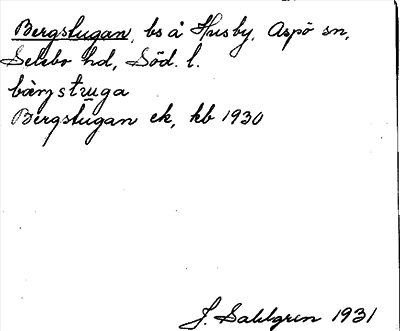 Bergstugan, bs å Husby, Aspö sn,
Selebo hd, Söd. l.
bàrŋstʉga
Bergstugan ek, kb 1930
J. Sahlgren 1931